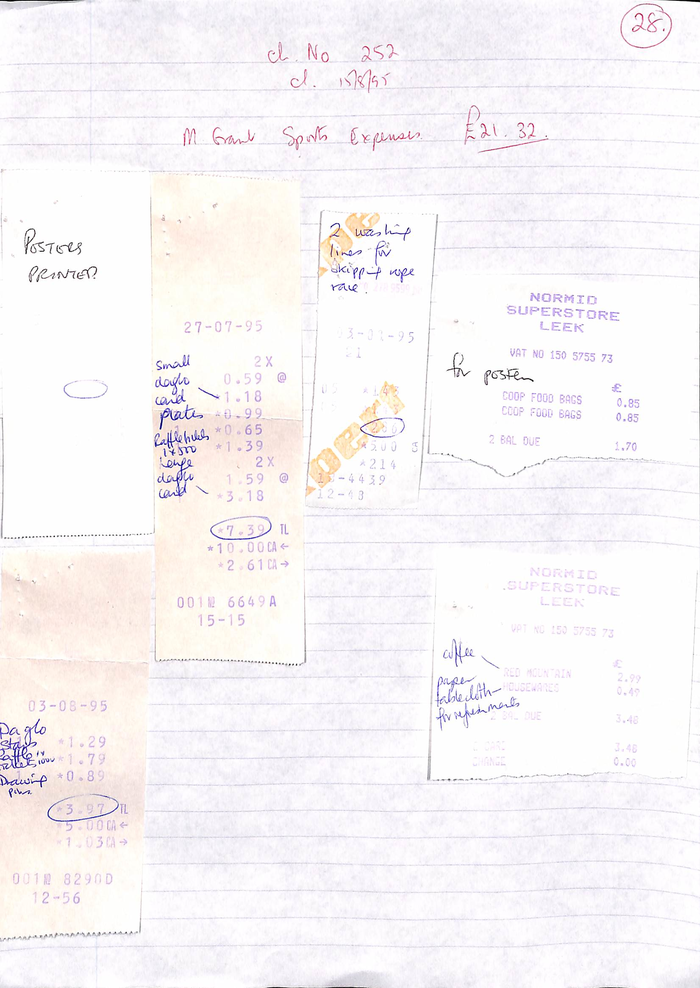 28.
ch. No 252
d. 15/8/95
M Grant Sports Expenses £21.32
POSTERS
PRINTER
27-07-95
small 2X
dayglo 0.59 @
card *1.18
plates *0.99
*0.65
Raffle tickets
1x500 *1.39
Large 2X
dayglo 1.59 @
card *3.18
*7.39 TL
*10.00CA←
*2.61CA→
001№ 6649A
15-15
2 washing
lines for
skipping rope
race.
-95
*214
-4439
12-48
for posters
NORMID
SUPERSTORE
LEEK
VAT NO 150 5755 73
£
COOP FOOD BAGS 0.85
COOP FOOD BAGS 0.85
2 BAL DUE 1.70
NORMID
SUPERSTORE
LEEK
VAT NO 150 5755 73
£
coffee
RED MOUNTAIN 2.99
paper
tablecloth
for refreshments
HOUSEWARES 0.49
2 BAL DUE 3.48
3.48
CHANGE 0.00
03-08-95
Dayglo
Stars *1.29
Raffle
tickets 1000 *1.79
Drawing *0.89
pins
*3.97 TL
*5.00CA←
*1.03CA→
001№ 8290D
12-56